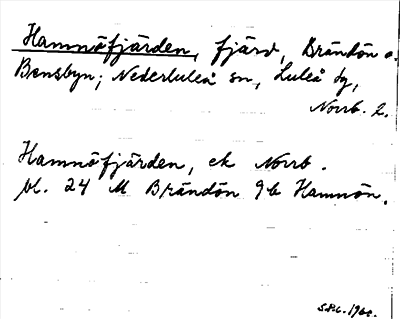 Hamnöfjärden, fjärd, Brändön o.
Bensbyn; Nederluleå sn, Luleå tg,
Norrb. l.
Hamnöfjärden, ek Norrb.
bl. 24 M Brändön 9b Hamnön.